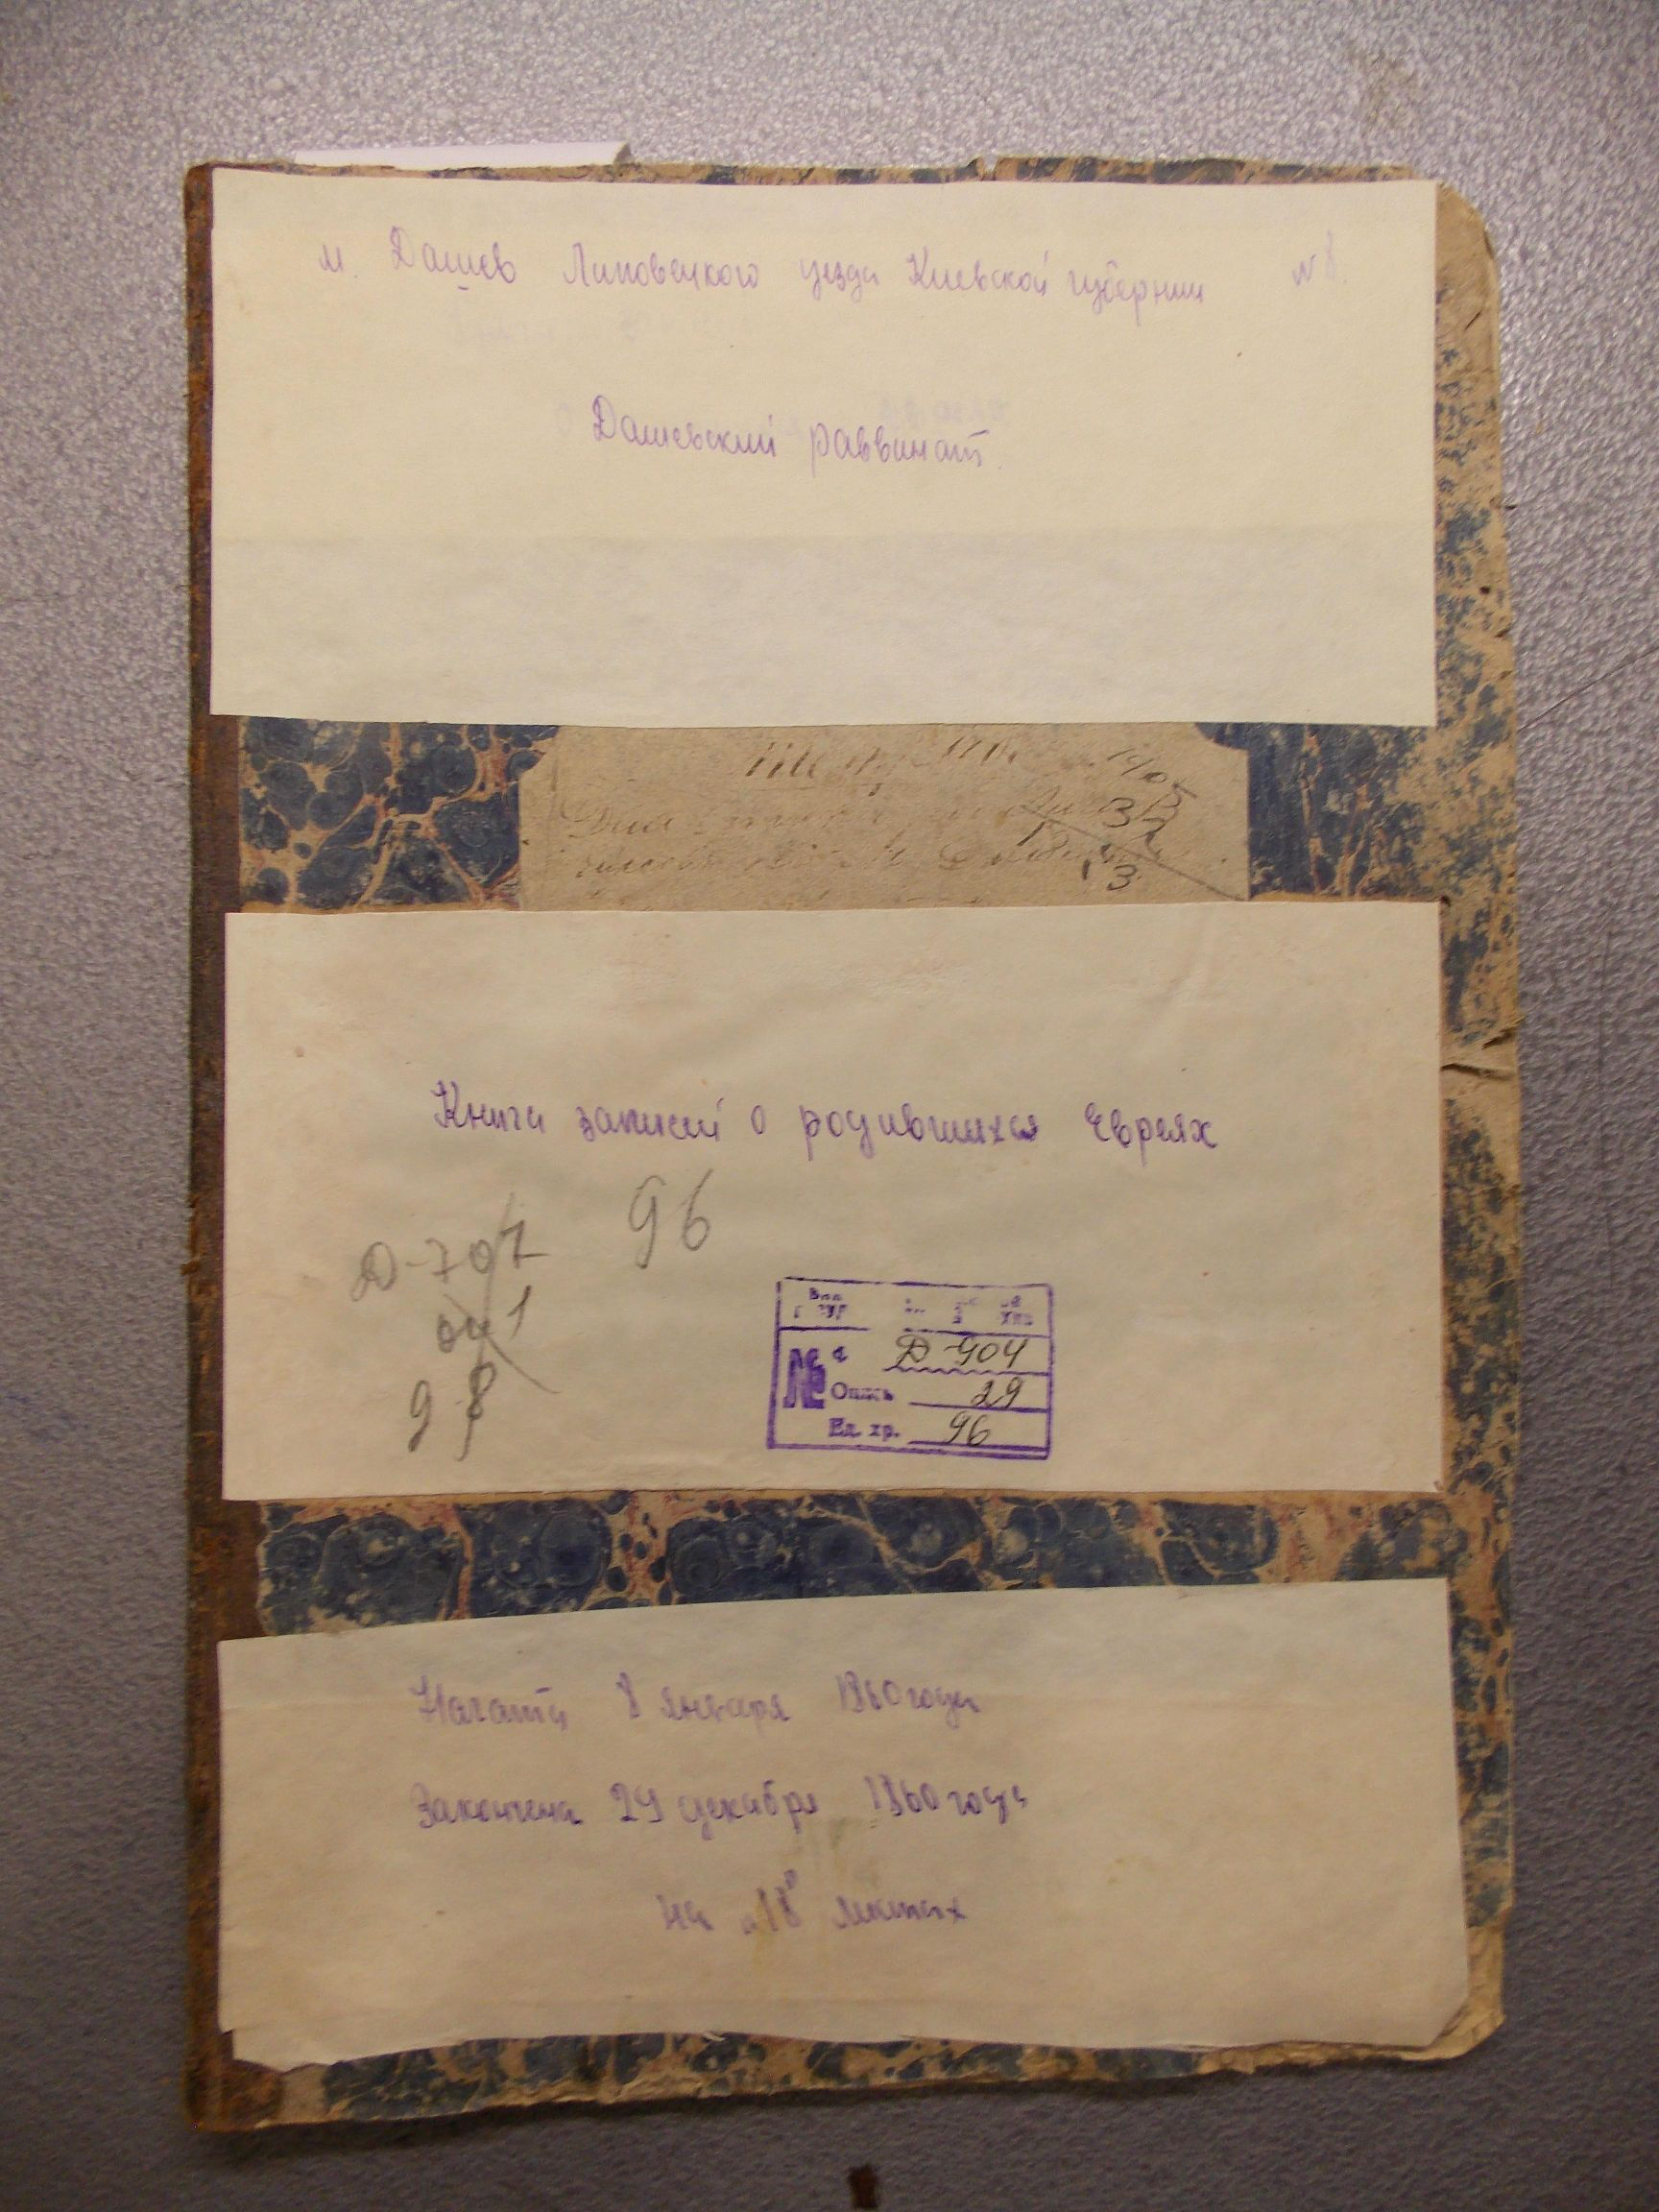 м. Дашев Липовецкого уезда Киевской губернии №8.
Дашевский раввинат.
1905
32
13
Книга записей о родившихся евреях
96
Д-707
оп 1
98
№
Д-904
Опись 29
Ед. хр. 96
Начата 8 января 1860 года
Закончена 29 декабря 1860 года
на „18" листах